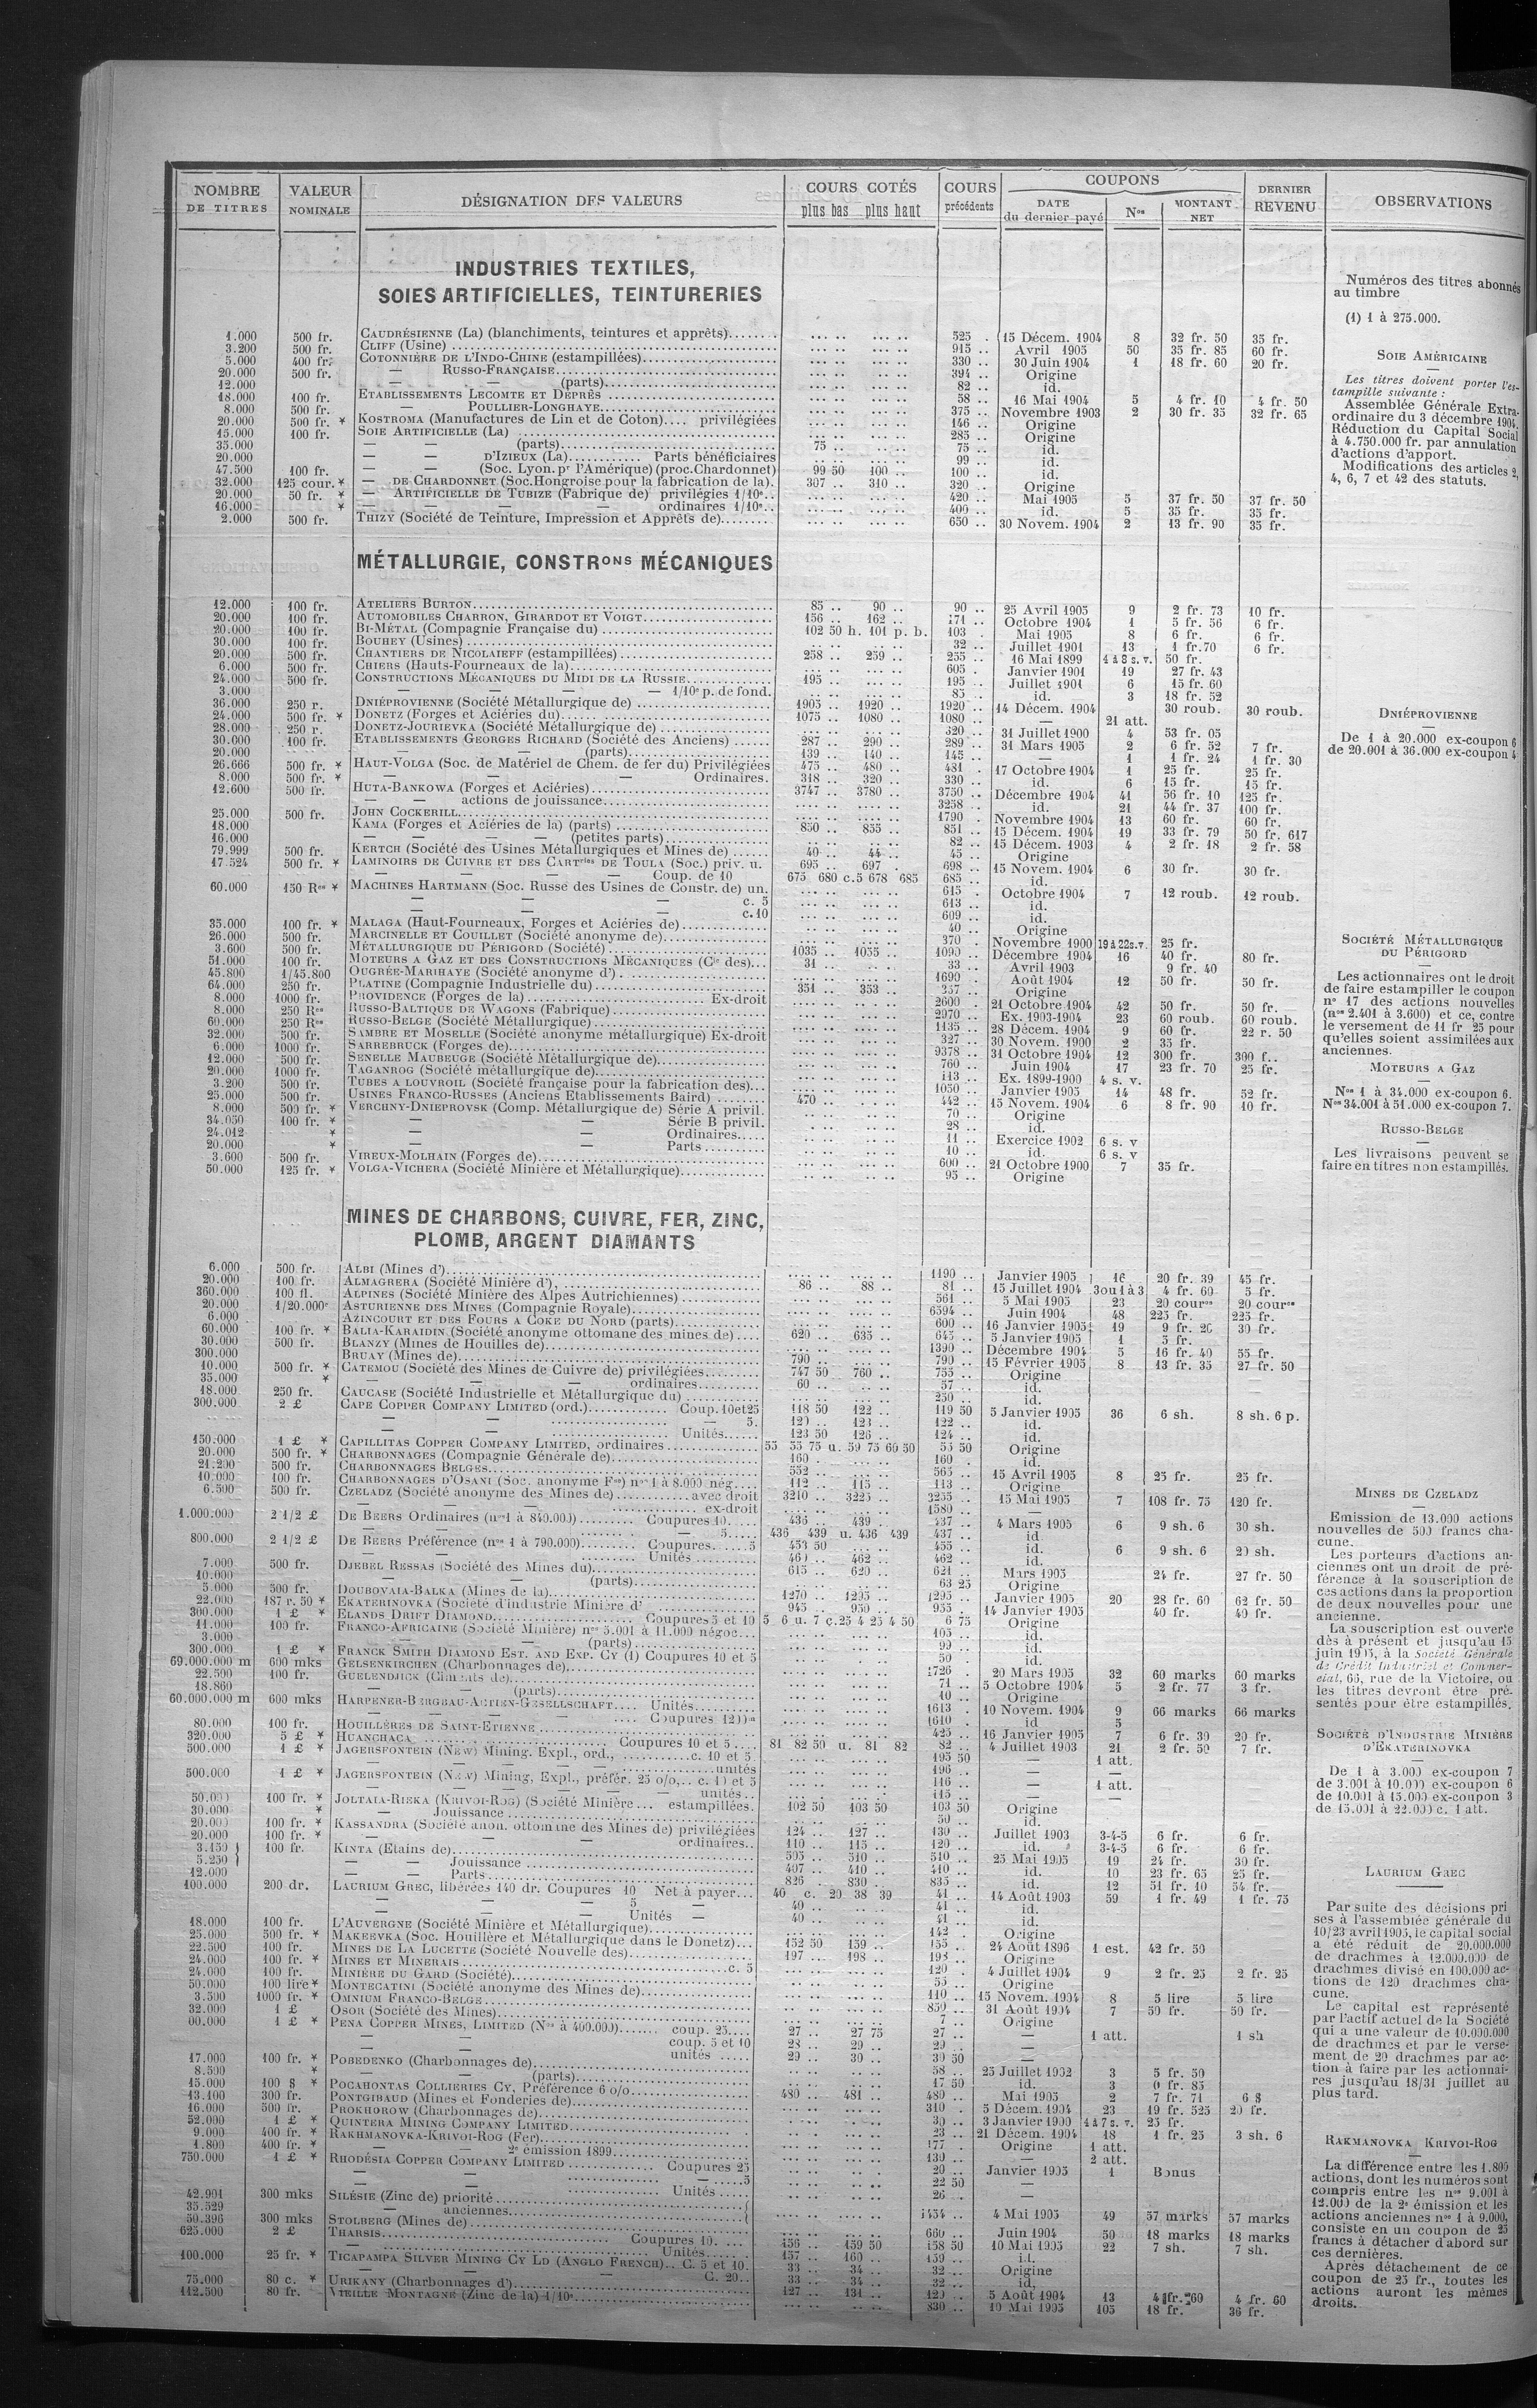 NOMBRE DE TITRES | VALEUR NOMINALE | DÉSIGNATION DES VALEURS | COURS COTÉS plus bas plus haut | COURS précédents | COUPONS DATE du dernier payé | Nos | MONTANT NET | DERNIER REVENU | OBSERVATIONS
INDUSTRIES TEXTILES,
SOIES ARTIFICIELLES, TEINTURERIES
1.000 500 fr. CAUDRÉSIENNE (La) (blanchiments, teintures et apprêts) 525 15 Décem. 1904 8 32 fr. 50 35 fr.
3.200 500 fr. CLIFF (Usine) 915 Avril 1905 50 35 fr. 85 60 fr.
5.000 400 fr. COTONNIÈRE DE L'INDO-CHINE (estampillées) 330 30 Juin 1904 1 18 fr. 60 20 fr.
20.000 500 fr. — RUSSO-FRANÇAISE 394 Origine
12.000 — — (parts) 82 id.
18.000 100 fr. ETABLISSEMENTS LECOMTE ET DEPRÈS 58 16 Mai 1904 5 4 fr. 10 4 fr. 50
8.000 500 fr. — POULLIER-LONGHAYE 375 Novembre 1903 2 30 fr. 35 32 fr. 65
20.000 500 fr. * KOSTROMA (Manufactures de Lin et de Coton) privilégiées 146 Origine
15.000 100 fr. SOIE ARTIFICIELLE (La) 285 Origine
35.000 — — (parts) 75 75 id.
20.000 — — D'IZIEUX (La) Parts bénéficiaires 99 id.
47.500 100 fr. — — (Soc. Lyon. pr l'Amérique) (proc. Chardonnet) 99 50 100 100 id.
32.000 125 cour. * — DE CHARDONNET (Soc. Hongroise pour la fabrication de la) 307 310 320 Origine
20.000 50 fr. * — ARTIFICIELLE DE TUBIZE (Fabrique de) privilégies 1/10e 420 Mai 1905 5 37 fr. 50 37 fr. 50
16.000 * — — — — ordinaires 1/10e 400 id. 5 35 fr. 35 fr.
2.000 500 fr. THIZY (Société de Teinture, Impression et Apprêts de) 650 30 Novem. 1904 2 13 fr. 90 35 fr.
MÉTALLURGIE, CONSTRons MÉCANIQUES
12.000 100 fr. ATELIERS BURTON 85 90 90 25 Avril 1905 9 2 fr. 73 10 fr.
20.000 100 fr. AUTOMOBILES CHARRON, GIRARDOT ET VOIGT 156 162 171 Octobre 1904 1 5 fr. 56 6 fr.
20.000 100 fr. BI-MÉTAL (Compagnie Française du) 102 50 h. 101 p. b. 103 Mai 1905 8 6 fr. 6 fr.
30.000 100 fr. BOUHEY (Usines) 32 Juillet 1901 13 1 fr. 70 6 fr.
20.000 500 fr. CHANTIERS DE NICOLAIEFF (estampillées) 258 259 255 16 Mai 1899 4 à 8 s. v. 50 fr.
6.000 500 fr. CHIERS (Hauts-Fourneaux de la) 605 Janvier 1901 19 27 fr. 43
24.000 500 fr. CONSTRUCTIONS MÉCANIQUES DU MIDI DE LA RUSSIE 195 195 Juillet 1901 6 15 fr. 60
3.000 — — — — 1/10e p. de fond. 85 id. 3 18 fr. 52
36.000 250 r. DNIÉPROVIENNE (Société Métallurgique de) 1905 1920 1920 14 Décem. 1904 30 roub. 30 roub.
24.000 500 fr. * DONETZ (Forges et Aciéries du) 1075 1080 1080 — 21 att.
28.000 250 r. DONETZ-JOURIEVKA (Société Métallurgique de) 320 31 Juillet 1900 4 53 fr. 05
30.000 100 fr. ETABLISSEMENTS GEORGES RICHARD (Société des Anciens) 287 290 289 31 Mars 1905 2 6 fr. 52 7 fr.
20.000 — — (parts) 139 140 145 — 1 1 fr. 24 1 fr. 30
26.666 500 fr. * HAUT-VOLGA (Soc. de Matériel de Chem. de fer du) Privilégiées 475 480 481 17 Octobre 1904 1 25 fr. 25 fr.
8.000 500 fr. * — — — Ordinaires. 318 320 330 id. 6 15 fr. 15 fr.
12.600 500 fr. HUTA-BANKOWA (Forges et Aciéries) 3747 3780 3750 Décembre 1904 41 56 fr. 10 125 fr.
— — actions de jouissance 3258 id. 21 44 fr. 37 100 fr.
25.000 500 fr. JOHN COCKERILL 1790 Novembre 1904 13 60 fr. 60 fr.
18.000 KAMA (Forges et Aciéries de la) (parts) 850 855 851 15 Décem. 1904 19 33 fr. 79 50 fr. 617
16.000 — — — (petites parts) 82 15 Décem. 1903 4 2 fr. 18 2 fr. 58
79.999 500 fr. KERTCH (Société des Usines Métallurgiques et Mines de) 40 44 45 Origine
17.524 500 fr. * LAMINOIRS DE CUIVRE ET DES CARTries DE TOULA (Soc.) priv. u. 695 697 698 15 Novem. 1904 6 30 fr. 30 fr.
— — — — Coup. de 10 675 680 c.5 678 685 685 id.
60.000 150 Ros * MACHINES HARTMANN (Soc. Russe des Usines de Constr. de) un. 615 Octobre 1904 7 12 roub. 12 roub.
— — — c. 5 613 id.
— — — c. 10 609 id.
35.000 100 fr. * MALAGA (Haut-Fourneaux, Forges et Aciéries de) 40 Origine
26.000 500 fr. MARCINELLE ET COUILLET (Société anonyme de) 370 Novembre 1900 19 à 22 s.v. 25 fr.
3.600 500 fr. MÉTALLURGIQUE DU PÉRIGORD (Société) 1035 1055 1090 Décembre 1904 16 40 fr. 80 fr.
51.000 100 fr. MOTEURS A GAZ ET DES CONSTRUCTIONS MÉCANIQUES (Cie des) 31 33 Avril 1903 9 fr. 40
45.800 1/45.800 OUGRÉE-MARIHAYE (Société anonyme d') 1690 Août 1904 12 50 fr. 50 fr.
64.000 250 fr. PLATINE (Compagnie Industrielle du) 351 353 357 Origine
8.000 1000 fr. PROVIDENCE (Forges de la) Ex-droit 2600 21 Octobre 1904 42 50 fr. 50 fr.
8.000 250 Ros RUSSO-BALTIQUE DE WAGONS (Fabrique) 2970 Ex. 1903-1904 23 60 roub. 60 roub.
60.000 250 Ros RUSSO-BELGE (Société Métallurgique) 1135 28 Décem. 1904 9 60 fr. 22 r. 50
32.000 500 fr. SAMBRE ET MOSELLE (Société anonyme métallurgique) Ex-droit 327 30 Novem. 1900 2 35 fr.
6.000 1000 fr. SARREBRUCK (Forges de) 9378 31 Octobre 1904 12 300 fr. 300 f.
12.000 500 fr. SENELLE MAUBEUGE (Société Métallurgique de) 760 Juin 1904 17 23 fr. 70 25 fr.
20.000 1000 fr. TAGANROG (Société métallurgique de) 113 Ex. 1899-1900 4 s. v.
3.200 500 fr. TUBES A LOUVROIL (Société française pour la fabrication des) 1050 Janvier 1905 14 48 fr. 52 fr.
25.000 500 fr. USINES FRANCO-RUSSES (Anciens Etablissements Baird) 470 442 15 Novem. 1904 6 8 fr. 90 10 fr.
8.000 500 fr. * VERCHNY-DNIEPROVSK (Comp. Métallurgique de) Série A privil. 70 Origine
34.050 100 fr. * — — Série B privil. 28 id.
24.012 * — — Ordinaires 11 Exercice 1902 6 s. v
20.000 * — — Parts 10 id. 6 s. v
3.600 500 fr. VIREUX-MOLHAIN (Forges de) 600 21 Octobre 1900 7 35 fr.
50.000 125 fr. * VOLGA-VICHERA (Société Minière et Métallurgique) 95 Origine
MINES DE CHARBONS, CUIVRE, FER, ZINC,
PLOMB, ARGENT DIAMANTS
6.000 500 fr. ALBI (Mines d') 1190 Janvier 1905 16 20 fr. 39 45 fr.
20.000 100 fr. ALMAGRERA (Société Minière d') 86 88 81 15 Juillet 1904 3 ou 1 à 3 4 fr. 60 5 fr.
360.000 100 fl. ALPINES (Société Minière des Alpes Autrichiennes) 561 5 Mai 1905 23 20 coures 20 coures
20.000 1/20.000e ASTURIENNE DES MINES (Compagnie Royale) 6594 Juin 1904 48 225 fr. 225 fr.
6.000 AZINCOURT ET DES FOURS A COKE DU NORD (parts) 600 16 Janvier 1905 19 9 fr. 30 fr.
60.000 100 fr. * BALIA-KARAIDIN (Société anonyme ottomane des mines de) 620 635 645 5 Janvier 1905 1 5 fr.
30.000 500 fr. BLANZY (Mines de Houilles de) 1390 Décembre 1904 5 16 fr. 40 55 fr.
300.000 BRUAY (Mines de) 790 790 15 Février 1905 8 13 fr. 35 27 fr. 50
10.000 500 fr. * CATEMOU (Société des Mines de Cuivre de) privilégiées 747 50 760 755 Origine
35.000 * — — — ordinaires 60 57 id.
18.000 250 fr. CAUCASE (Société Industrielle et Métallurgique du) 250 id.
300.000 2 £ CAPE COPPER COMPANY LIMITED (ord.) Coup. 10 et 25 118 50 122 119 50 5 Janvier 1905 36 6 sh. 8 sh. 6 p.
— — — 5. 120 123 122 id.
— — Unités 123 50 126 124 id.
150.000 1 £ * CAPILLITAS COPPER COMPANY LIMITED, ordinaires 55 55 75 u. 59 75 60 50 55 50 Origine
20.000 500 fr. * CHARBONNAGES (Compagnie Générale de) 160 169 id.
21.200 500 fr. CHARBONNAGES BELGES 552 565 15 Avril 1905 8 25 fr. 25 fr.
10.000 100 fr. CHARBONNAGES D'OSANI (Soc. anonyme Fse) nos 1 à 8.000 nég. 112 115 113 Origine
6.500 500 fr. CZELADZ (Société anonyme des Mines de) avec droit 3210 3225 3255 15 Mai 1905 7 108 fr. 75 120 fr.
— — ex-droit 1580 —
1.000.000 2 1/2 £ DE BEERS Ordinaires (nos 1 à 840.000) Coupures 10 436 439 437 4 Mars 1905 6 9 sh. 6 30 sh.
— — 5 436 439 u. 436 439 437 id.
800.000 2 1/2 £ DE BEERS Préférence (nos 1 à 790.000) Coupures 5 453 50 455 id. 6 9 sh. 6 20 sh.
— Unités 460 462 462 id.
7.000 500 fr. DJEBEL RESSAS (Société des Mines du) 615 620 621 Mars 1905 24 fr. 27 fr. 50
10.000 — — (parts) 63 25 Origine
5.000 500 fr. DOUBOVAIA-BALKA (Mines de la) 1270 1295 1295 Janvier 1905 20 28 fr. 60 62 fr. 50
22.000 187 r. 50 * EKATERINOVKA (Société d'industrie Minière d' 945 950 955 14 Janvier 1905 40 fr. 40 fr.
300.000 1 £ * ELANDS DRIFT DIAMOND Coupures 5 et 10 5 6 u. 7 c.25 4 25 4 50 6 75 Origine
11.000 100 fr. FRANCO-AFRICAINE (Société Minière) nos 5.001 à 11.000 négoc. 105 id.
3.000 — — (parts) 99 id.
300.000 1 £ * FRANCK SMITH DIAMOND EST. AND EXP. CY (1) Coupures 10 et 5 50 id.
69.000.000 m 600 mks GELSENKIRCHEN (Charbonnages de) 1726 20 Mars 1905 32 60 marks 60 marks
22.500 100 fr. GUELENDJICK (Ciments de) 71 5 Octobre 1904 5 2 fr. 77 3 fr.
18.860 — — (parts) 10 Origine
60.000.000 m 600 mks HARPENER-BERGBAU-ACTIEN-GESELLSCHAFT Unités 1613 10 Novem. 1904 9 66 marks 66 marks
— — Coupures 1200m 1610 id 5
80.000 100 fr. HOUILLÈRES DE SAINT-ETIENNE 425 16 Janvier 1905 7 6 fr. 30 20 fr.
320.000 5 £ * HUANCHACA Coupures 10 et 5 81 82 50 u. 81 82 82 4 Juillet 1903 21 2 fr. 50 7 fr.
500.000 1 £ * JAGERSFONTEIN (New) Mining. Expl., ord., c. 10 et 5 195 50 — 1 att.
— — — unités 196 —
500.000 1 £ * JAGERSFONTEIN (New) Mining, Expl., préfér. 25 o/o, c. 10 et 5 116 — 1 att.
— — — unités 115 —
50.000 100 fr. * JOLTAIA-RIEKA (KRIVOI-ROG) (Société Minière estampillées. 102 50 103 50 103 50 Origine
30.000 * — Jouissance 50 id.
20.000 100 fr. * KASSANDRA (Société anon. ottomane des Mines de) privilégiées 124 127 130 Juillet 1903 3-4-5 6 fr. 6 fr.
20.000 100 fr. * — — — ordinaires 110 115 120 id. 3-4-5 6 fr. 6 fr.
3.150 100 fr. KINTA (Etains de) 505 510 510 25 Mai 1905 19 24 fr. 30 fr.
5.250 — — Jouissance 407 410 410 id. 10 23 fr. 65 25 fr.
12.000 — — Parts 826 830 835 id. 12 51 fr. 10 54 fr.
100.000 200 dr. LAURIUM GREC, libérées 140 dr. Coupures 10 Net à payer 40 c. 20 38 39 41 14 Août 1903 59 1 fr. 49 1 fr. 75
— — 5 — 40 41 id.
— — Unités — 40 41 id.
18.000 100 fr. L'AUVERGNE (Société Minière et Métallurgique) 142 Origine
25.000 500 fr. * MAKEEVKA (Soc. Houillère et Métallurgique dans le Donetz) 152 50 159 155 24 Août 1896 1 est. 42 fr. 50
22.500 100 fr. MINES DE LA LUCETTE (Société Nouvelle des) 197 198 198 Origine
24.000 100 fr. * MINES ET MINERAIS c. 5 120 4 Juillet 1904 9 2 fr. 25 2 fr. 25
24.000 100 fr. MINIÈRE DU GARD (Société) 55 Origine
50.000 100 lire * MONTECATINI (Société anonyme des Mines de) 110 15 Novem. 1904 8 5 lire 5 lire
3.500 1000 fr. * OMNIUM FRANCO-BELGE 850 31 Août 1904 7 50 fr. 50 fr.
32.000 1 £ OSOR (Société des Mines) 7 Origine
00.000 1 £ * PENA COPPER MINES, LIMITED (Nos à 400.000) coup. 25 27 27 75 27 — 1 att. 1 sh
— — coup. 5 et 10 28 29 29 —
— unités 29 30 30 50 —
17.000 100 fr. * POBEDENKO (Charbonnages de) 58 25 Juillet 1902 3 5 fr. 50
8.500 * — — (parts) 17 50 id. 3 0 fr. 85
15.000 100 $ * POCAHONTAS COLLIERIES CY, Préférence 6 o/o 480 481 480 Mai 1905 2 7 fr. 71 6 $
13.100 300 fr. PONTGIBAUD (Mines et Fonderies de) 310 5 Décem. 1904 23 19 fr. 525 20 fr.
16.000 500 fr. PROKHOROW (Charbonnages de) 30 3 Janvier 1900 4 à 7 s. v. 25 fr.
52.000 1 £ * QUINTERA MINING COMPANY LIMITED 23 21 Décem. 1904 18 1 fr. 25 3 sh. 6
9.000 400 fr. * RAKHMANOVKA-KRIVOI-ROG (Fer) 177 Origine 1 att.
1.800 400 fr. * — — 2e émission 1899 130 — 2 att.
750.000 1 £ * RHODÉSIA COPPER COMPANY LIMITED Coupures 25 20 Janvier 1905 1 Bonus
— — — 5 22 50 —
— Unités 26 —
42.901 300 mks SILÉSIE (Zinc de) priorité
35.529 — anciennes 1454 4 Mai 1905 49 57 marks 57 marks
50.396 300 mks STOLBERG (Mines de) 660 Juin 1904 50 18 marks 18 marks
625.000 2 £ THARSIS Coupures 10 156 159 50 158 50 10 Mai 1905 22 7 sh. 7 sh.
— Unités 157 160 159 id.
100.000 25 fr. * TICAPAMPA SILVER MINING CY LD (ANGLO FRENCH) C. 5 et 10 33 34 32 Origine
— C. 20 33 34 32 id.
75.000 80 c. * URIKANY (Charbonnages d') 127 131 125 5 Août 1904 13 4 fr. 60 4 fr. 60
112.500 80 fr. VIEILLE MONTAGNE (Zinc de la) 1/10e 830 10 Mai 1905 105 18 fr. 36 fr.
Numéros des titres abonnés
au timbre
(1) 1 à 275.000.
SOIE AMÉRICAINE
Les titres doivent porter l'es-
tampille suivante :
Assemblée Générale Extra-
ordinaire du 3 décembre 1904.
Réduction du Capital Social
à 4.750.000 fr. par annulation
d'actions d'apport.
Modifications des articles 2,
4, 6, 7 et 42 des statuts.
DNIÉPROVIENNE
De 1 à 20.000 ex-coupon 6
de 20.001 à 36.000 ex-coupon 4
SOCIÉTÉ MÉTALLURGIQUE
DU PÉRIGORD
Les actionnaires ont le droit
de faire estampiller le coupon
no 17 des actions nouvelles
(nos 2.401 à 3.600) et ce, contre
le versement de 11 fr 25 pour
qu'elles soient assimilées aux
anciennes.
MOTEURS A GAZ
Nos 1 à 34.000 ex-coupon 6.
Nos 34.001 à 51.000 ex-coupon 7.
RUSSO-BELGE
Les livraisons peuvent se
faire en titres non estampillés.
MINES DE CZELADZ
Emission de 13.000 actions
nouvelles de 500 francs cha-
cune.
Les porteurs d'actions an-
ciennes ont un droit de pré-
férence à la souscription de
ces actions dans la proportion
de deux nouvelles pour une
ancienne.
La souscription est ouverte
dès à présent et jusqu'au 15
juin 1905, à la Société Générale
de Crédit Industriel et Commer-
cial, 66, rue de la Victoire, ou
les titres devront être pré-
sentés pour être estampillés.
SOCIÉTÉ D'INDUSTRIE MINIÈRE
D'EKATERINOVKA
De 1 à 3.000 ex-coupon 7
de 3.001 à 10.000 ex-coupon 6
de 10.001 à 15.000 ex-coupon 3
de 15.001 à 22.000 c. 1 att.
LAURIUM GREC
Par suite des décisions pri
ses à l'assemblée générale du
10/23 avril 1905, le capital social
a été réduit de 20.000.000
de drachmes à 12.000.000 de
drachmes divisé en 100.000 ac-
tions de 120 drachmes cha-
cune.
Le capital est représenté
par l'actif actuel de la Société
qui a une valeur de 10.000.000
de drachmes et par le verse-
ment de 20 drachmes par ac-
tion à faire par les actionnai-
res jusqu'au 18/31 juillet au
plus tard.
RAKMANOVKA KRIVOI-ROG
La différence entre les 1.800
actions, dont les numéros sont
compris entre les nos 9.001 à
12.000 de la 2e émission et les
actions anciennes nos 1 à 9.000,
consiste en un coupon de 25
francs à détacher d'abord sur
ces dernières.
Après détachement de ce
coupon de 25 fr., toutes les
actions auront les mêmes
droits.